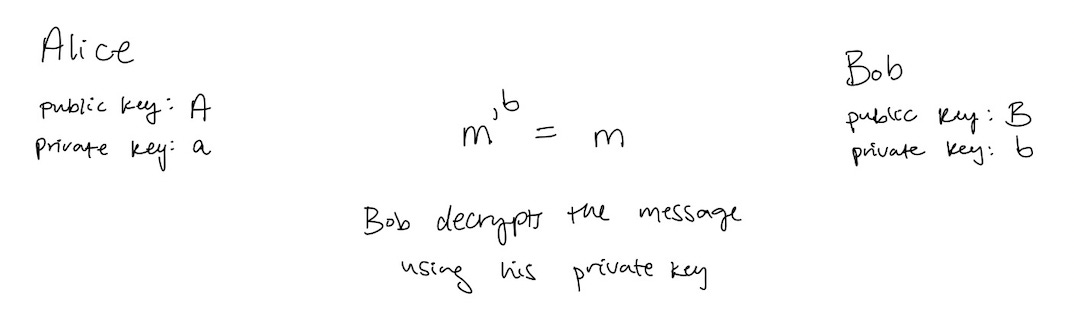 Alice
public key: A
private key: a
m'^b = m
Bob decrypts the message
using his private key
Bob
public key: B
private key: b